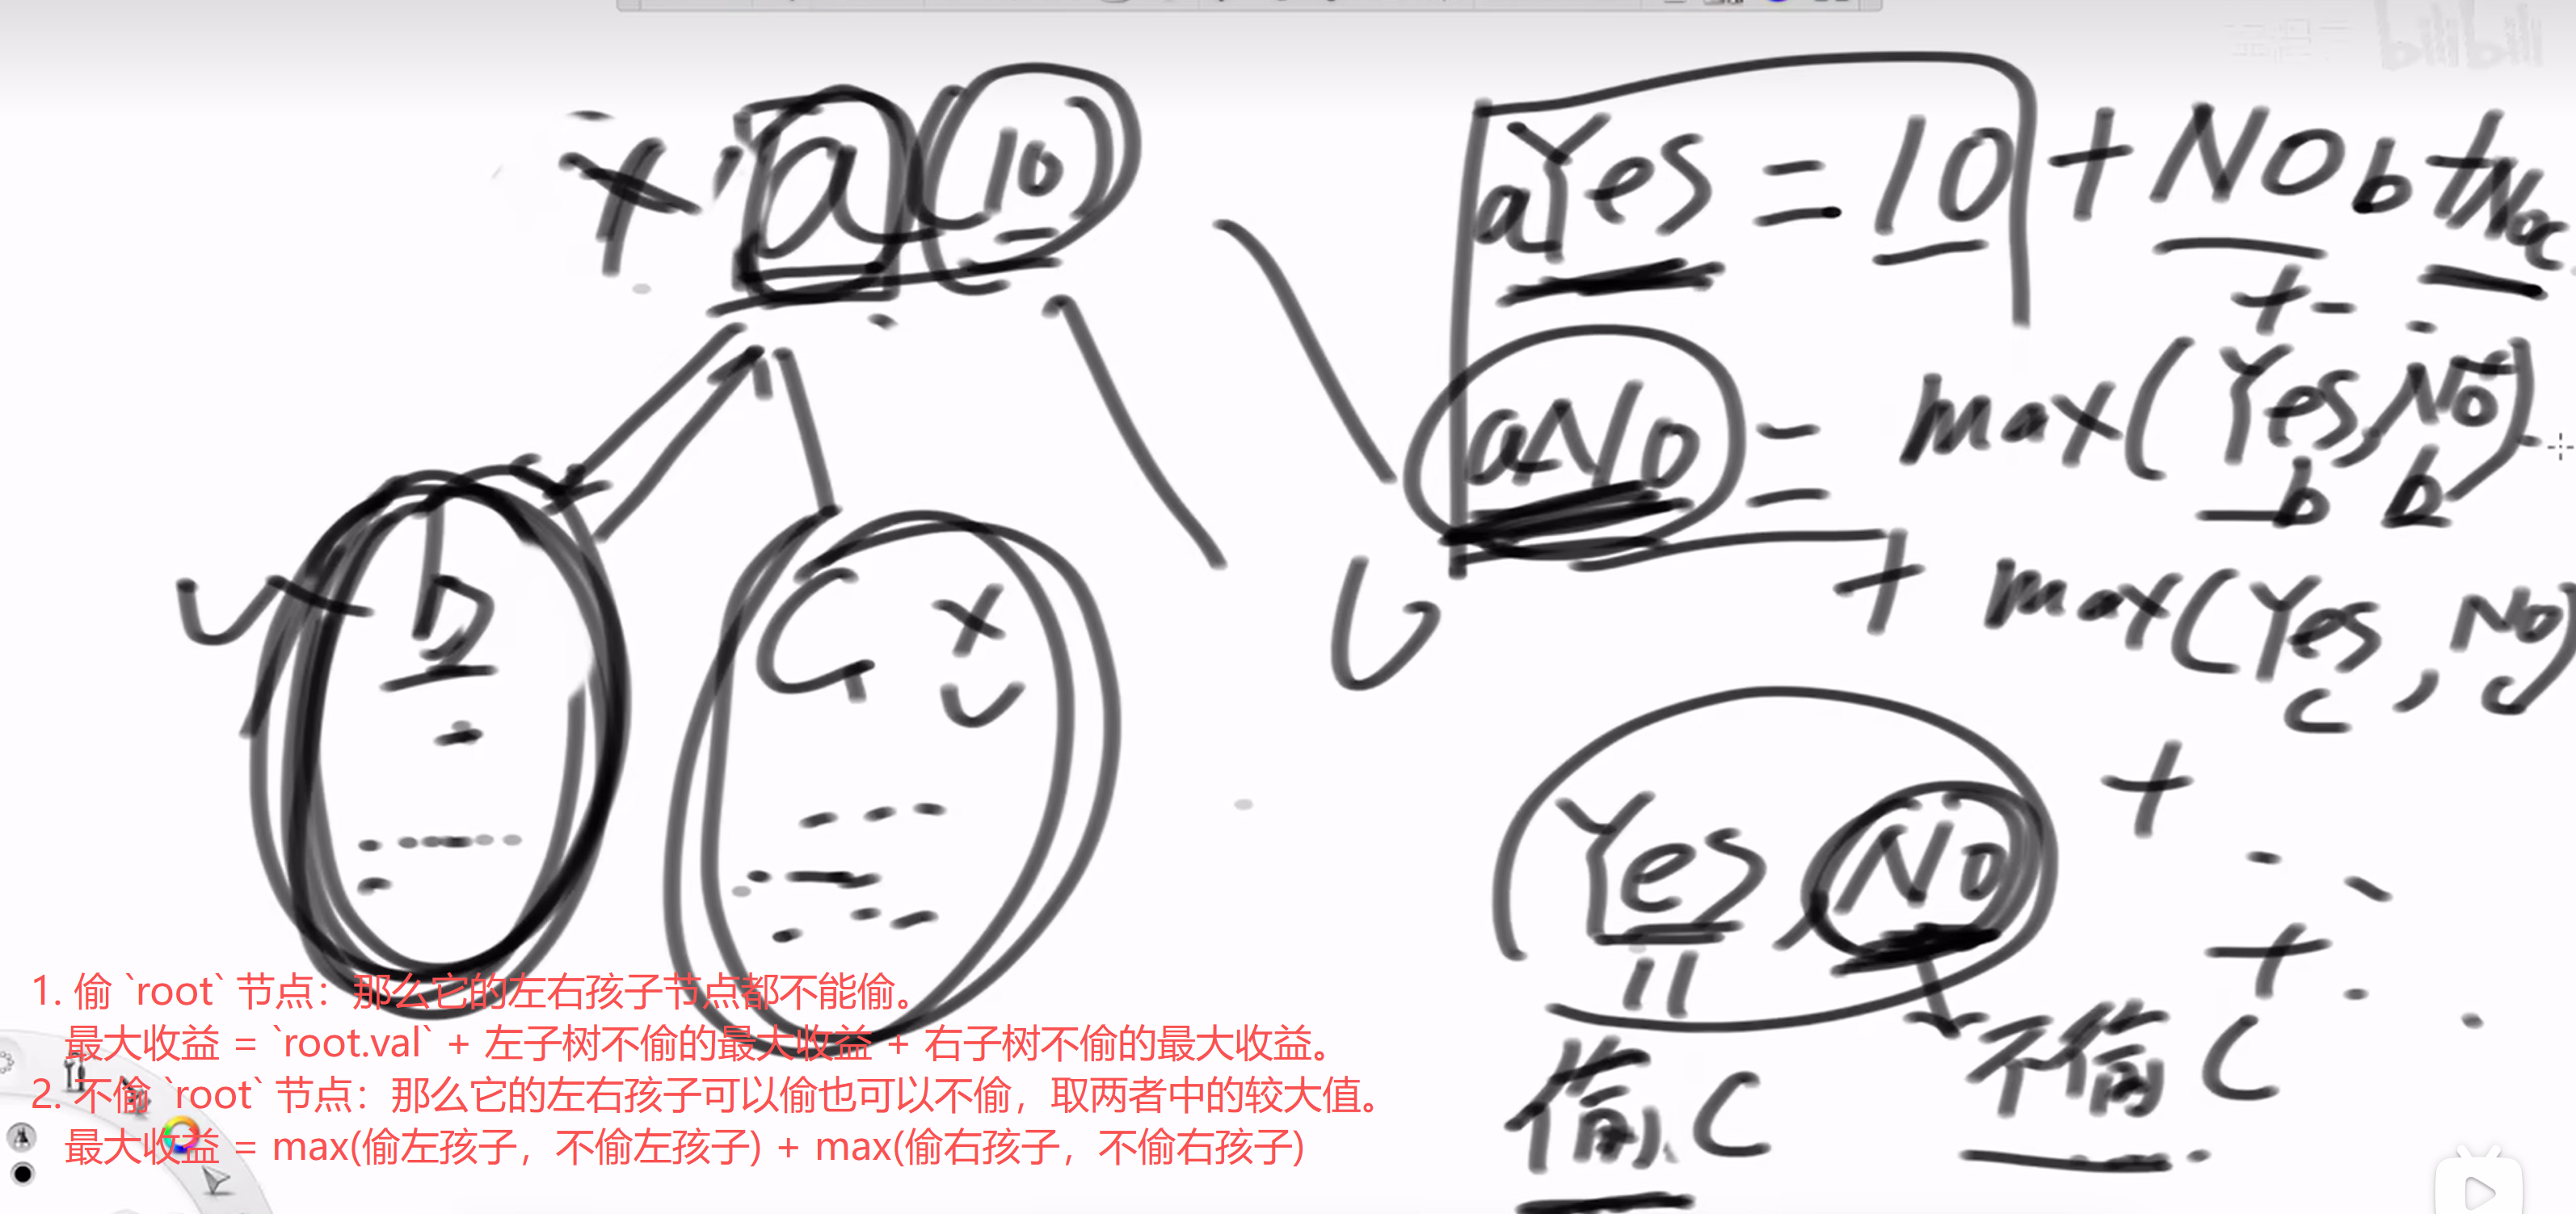 bilibili
x a 10
aYes = 10 + No b + No c
+
aNo = max(Yes b, No b)
+ max(Yes c, No c)
b
C x
Yes, No
+
+
偷C
不偷C
1. 偷 `root` 节点：那么它的左右孩子节点都不能偷。
最大收益 = `root.val` + 左子树不偷的最大收益 + 右子树不偷的最大收益。
2. 不偷 `root` 节点：那么它的左右孩子可以偷也可以不偷，取两者中的较大值。
最大收益 = max(偷左孩子，不偷左孩子) + max(偷右孩子，不偷右孩子)